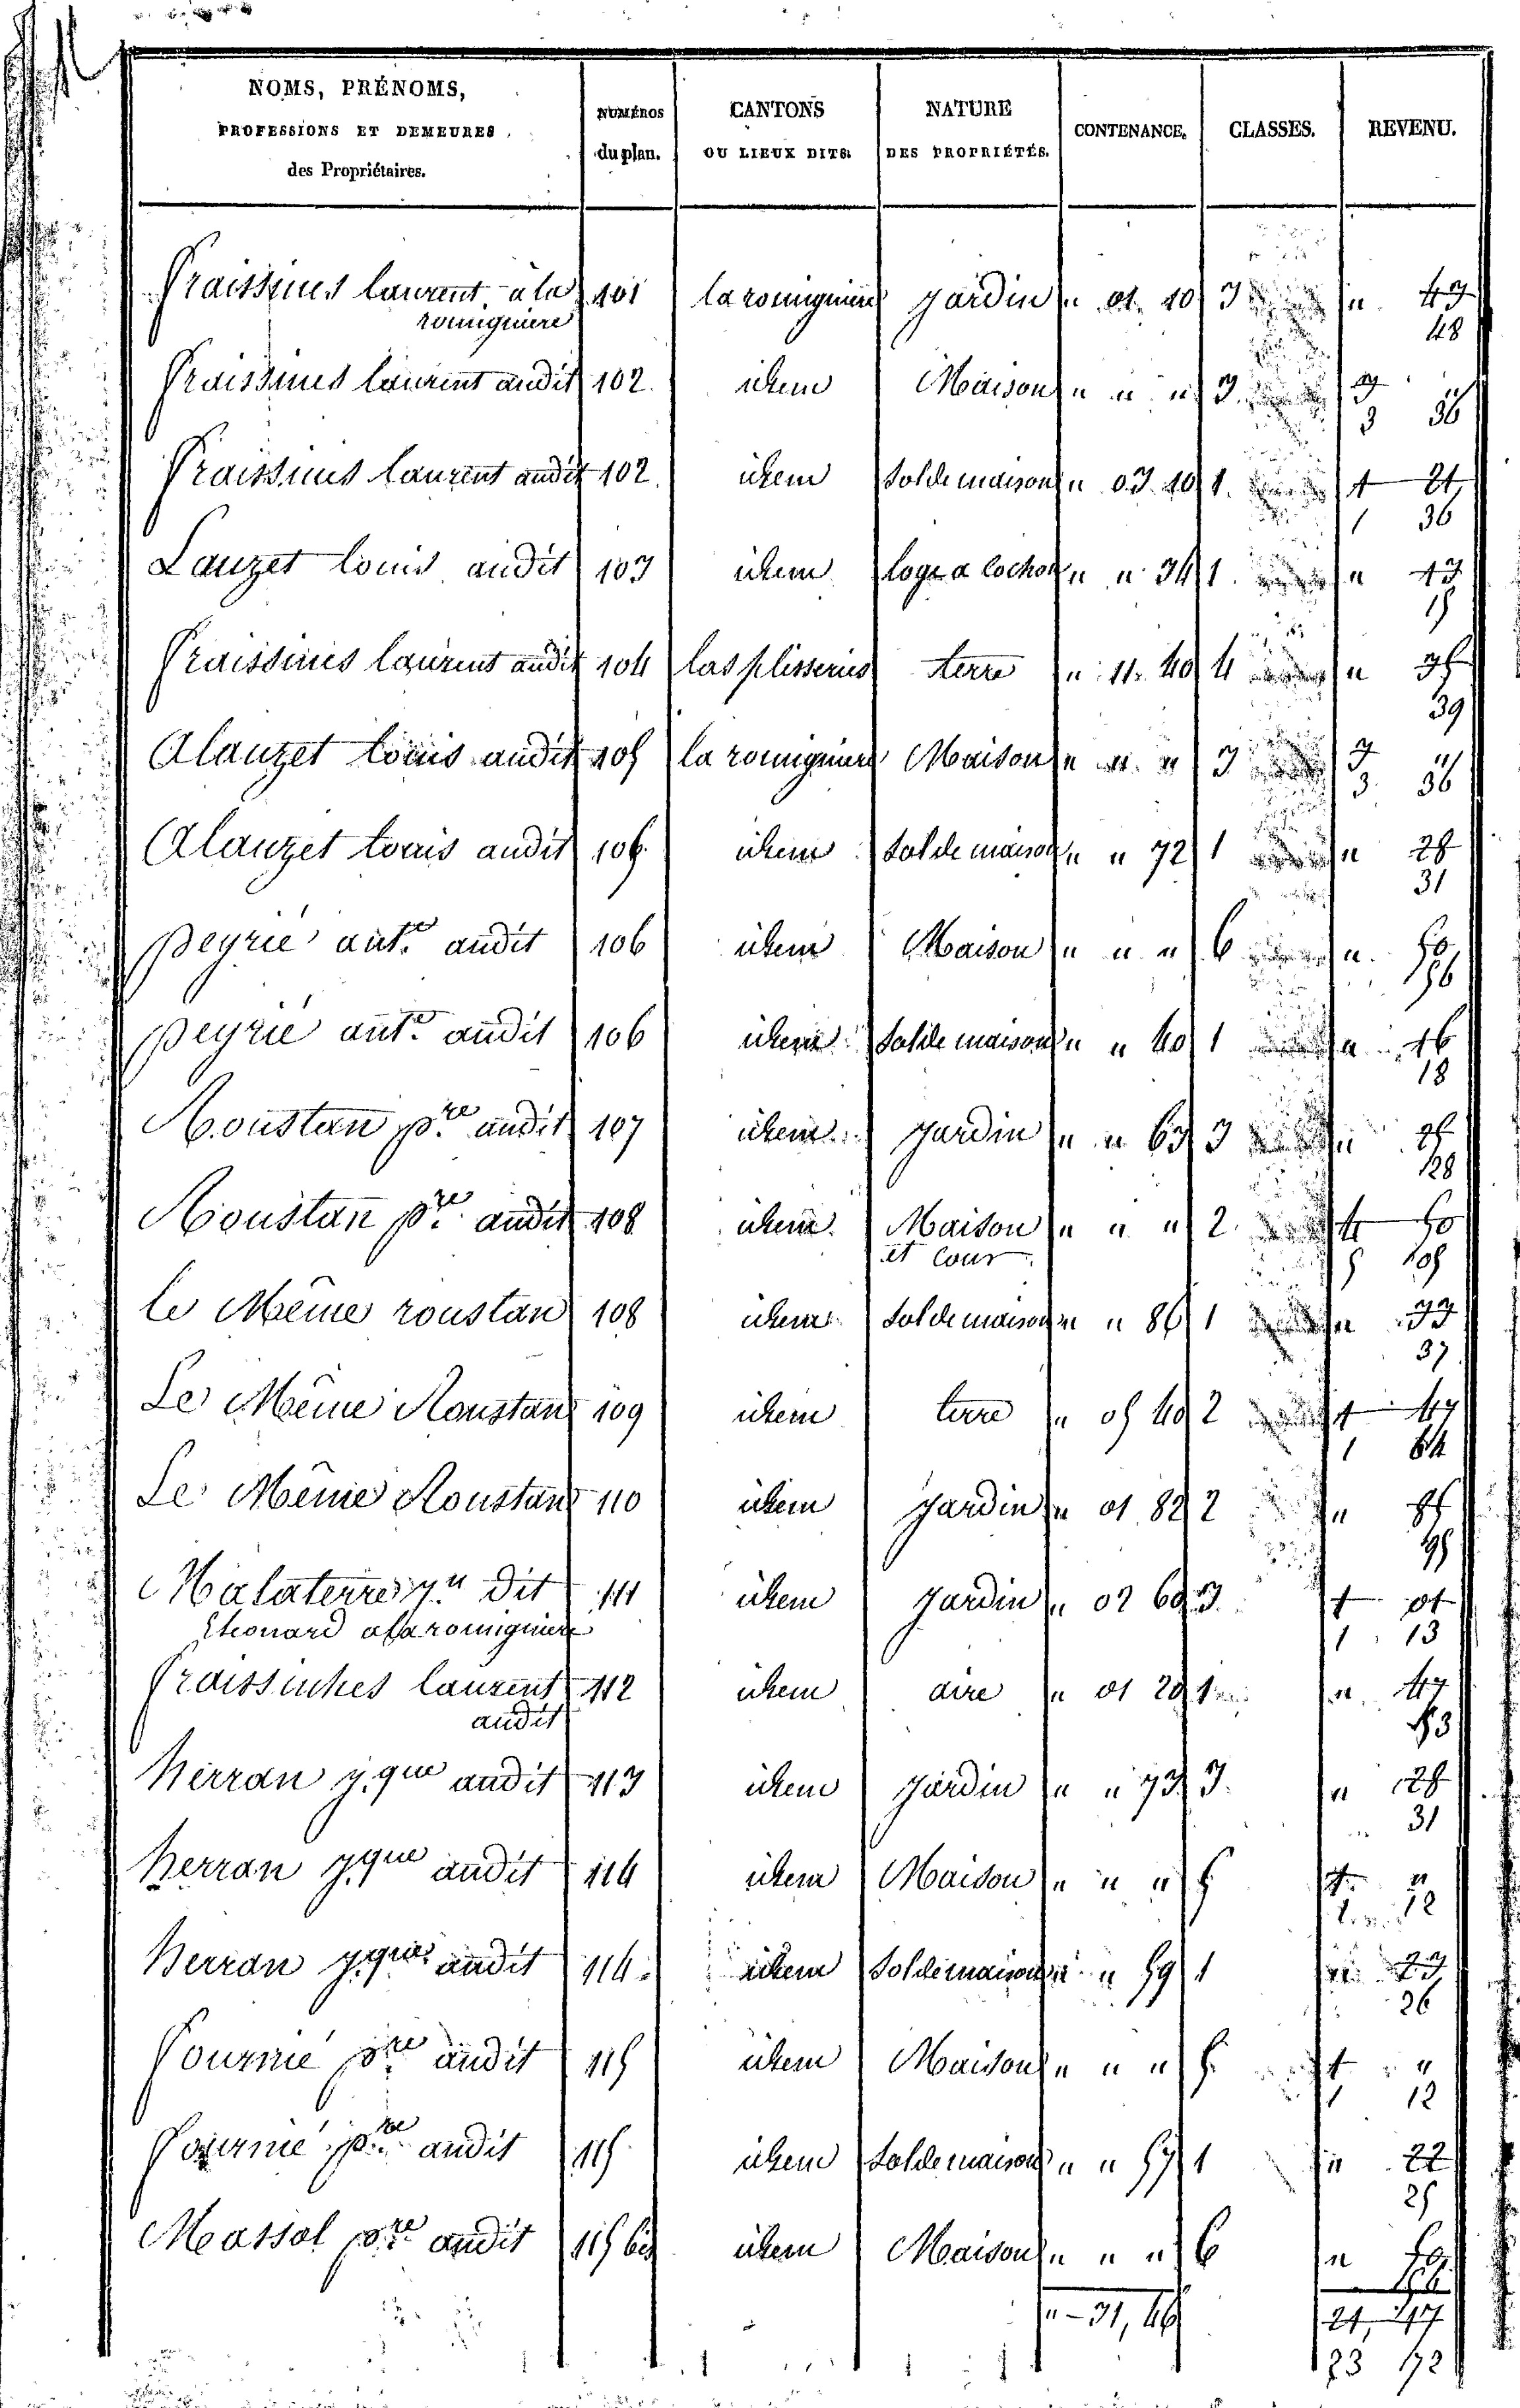 NOMS, PRÉNOMS, PROFESSIONS ET DEMEURES des Propriétaires. NUMÉROS du plan. CANTONS OU LIEUX DITS. NATURE DES PROPRIÉTÉS. CONTENANCE. CLASSES. REVENU.
Fraissines laurent à la 101 la romiguiere jardin " 01. 10 3 " 43
romiguiere 48
Fraissines laurent audit 102. idem Maison " " " 3. 3 "
3 36
Fraissines laurent audit 102. idem Sol de maison " 03. 10 1. 1 21
1 36
Lauzet louis audit 103 idem loge a cochon " " 34 1. " 13
15
Fraissines laurent audit 104 las plisseries terre " 11. 40 4 " 35
39
Alauzet louis audit 105 la romiguiere Maison " " " 3 3 "
3 36
Alauzet louis audit 105. idem Sol de maison " " 72 1 " 28
31
peyrié ant.e audit 106 idem Maison " " " 6 ". 50
56
peyrié ant.e audit 106 idem Sol de maison " " 40 1 " 16
18
Roustan p.re audit 107 idem jardin " " 63 3 " 25
28
Roustan p.re audit 108 idem. Maison " " " 2. 4 50
et Cour 5 05
le Même roustan 108 idem Sol de maison " " 86 1 " 33
37.
Le Même Roustan 109 idem terre " 05 40 2 1 47
1 64
Le Même Roustan 110 idem jardin " 01 82 2 " 85
95
Malaterre dit 111 idem jardin " 02 60 3. 1 01
Léonard a la romiguiere 1 13
Fraissinhes laurent 112 idem aire " 01 20 1 " 47
audit 53
Herran j.que audit 113 idem jardin " " 73 3. " 28
31
herran j.que audit 114 idem Maison " " " 5 1 "
1 12
Herran j.que audit 114. idem Sol de maison " " 59 1 " 23
26
Fournié p.re audit 115 idem Maison " " " 5. 1 "
1 12
Fournié p.re audit 115 idem Sol de maison " " 57 1 " 22
25
Massol p.re audit 115 bis idem Maison " " " 6 " 50
56
" - 31, 46 21, 17
23 72